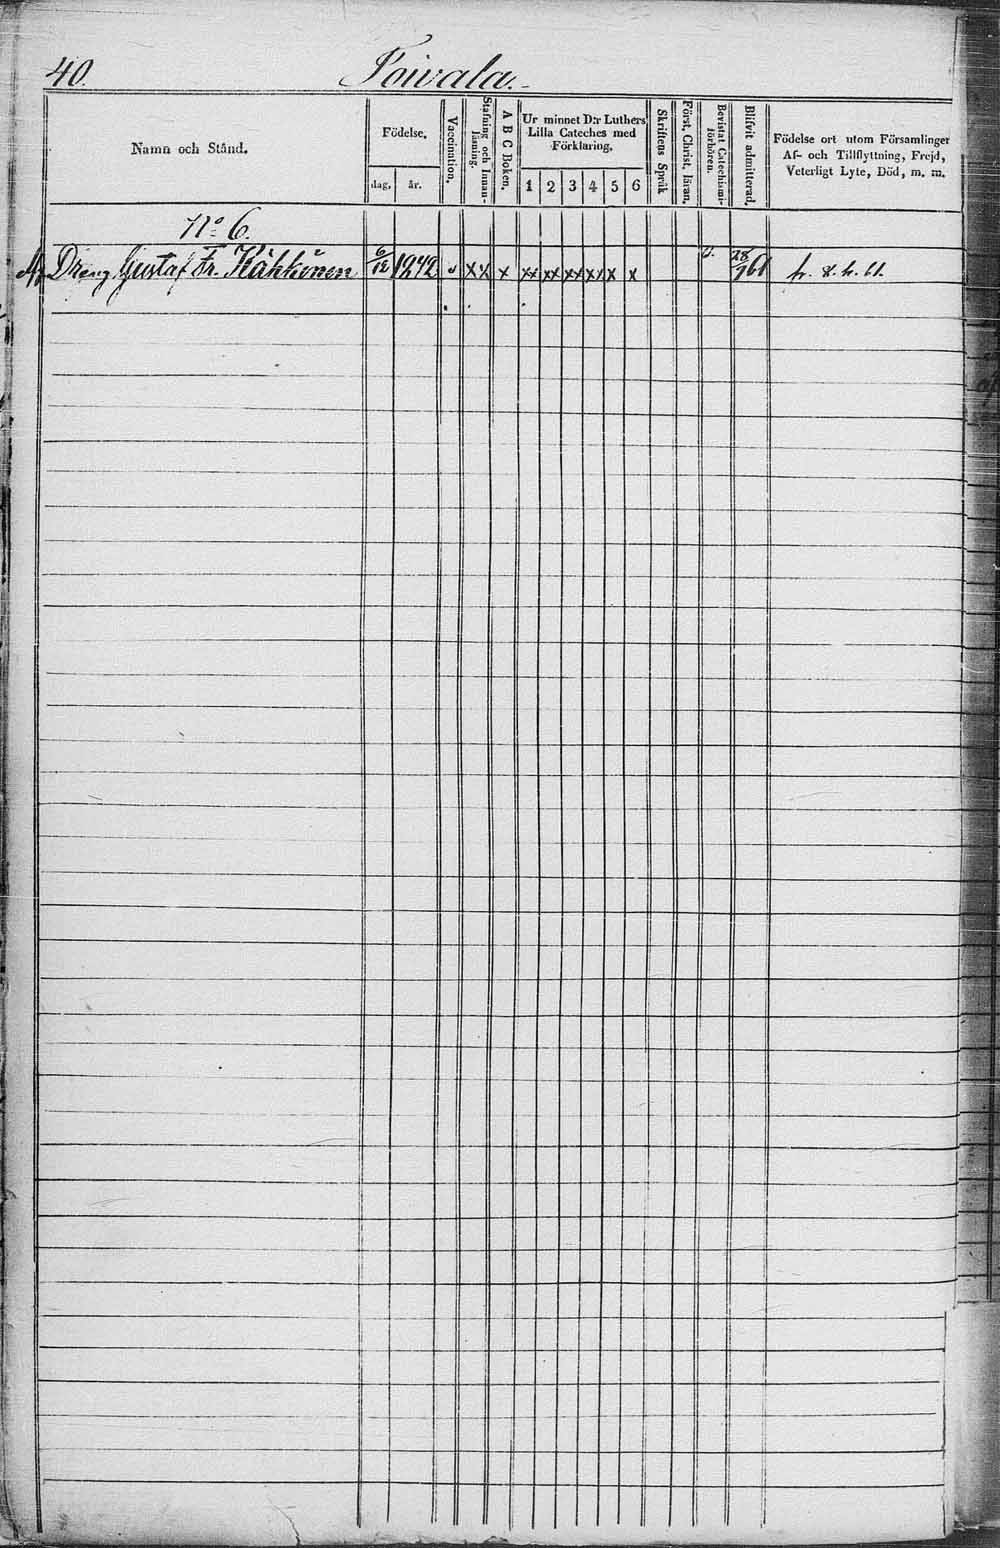 40. Toivala.
Namn och Stånd.
Födelse.
dag. år.
Vaccination.
Stafning och Innanläsning.
A B C Boken.
Ur minnet D:r Luthers
Lilla Cateches med
Förklaring.
1 2 3 4 5 6
Skriftens Språk
Först. Christ. läran.
Bevistat Catechismiförhören.
Blifvit admitterad.
Födelse ort utom Församlinger
Af- och Tillflyttning, Frejd,
Veterligt Lyte, Död, m. m.
No 6.
Dreng Gustaf Fr. Kähkönen 6/12 1842 xx x xx xx xx xx x x 28/7 60